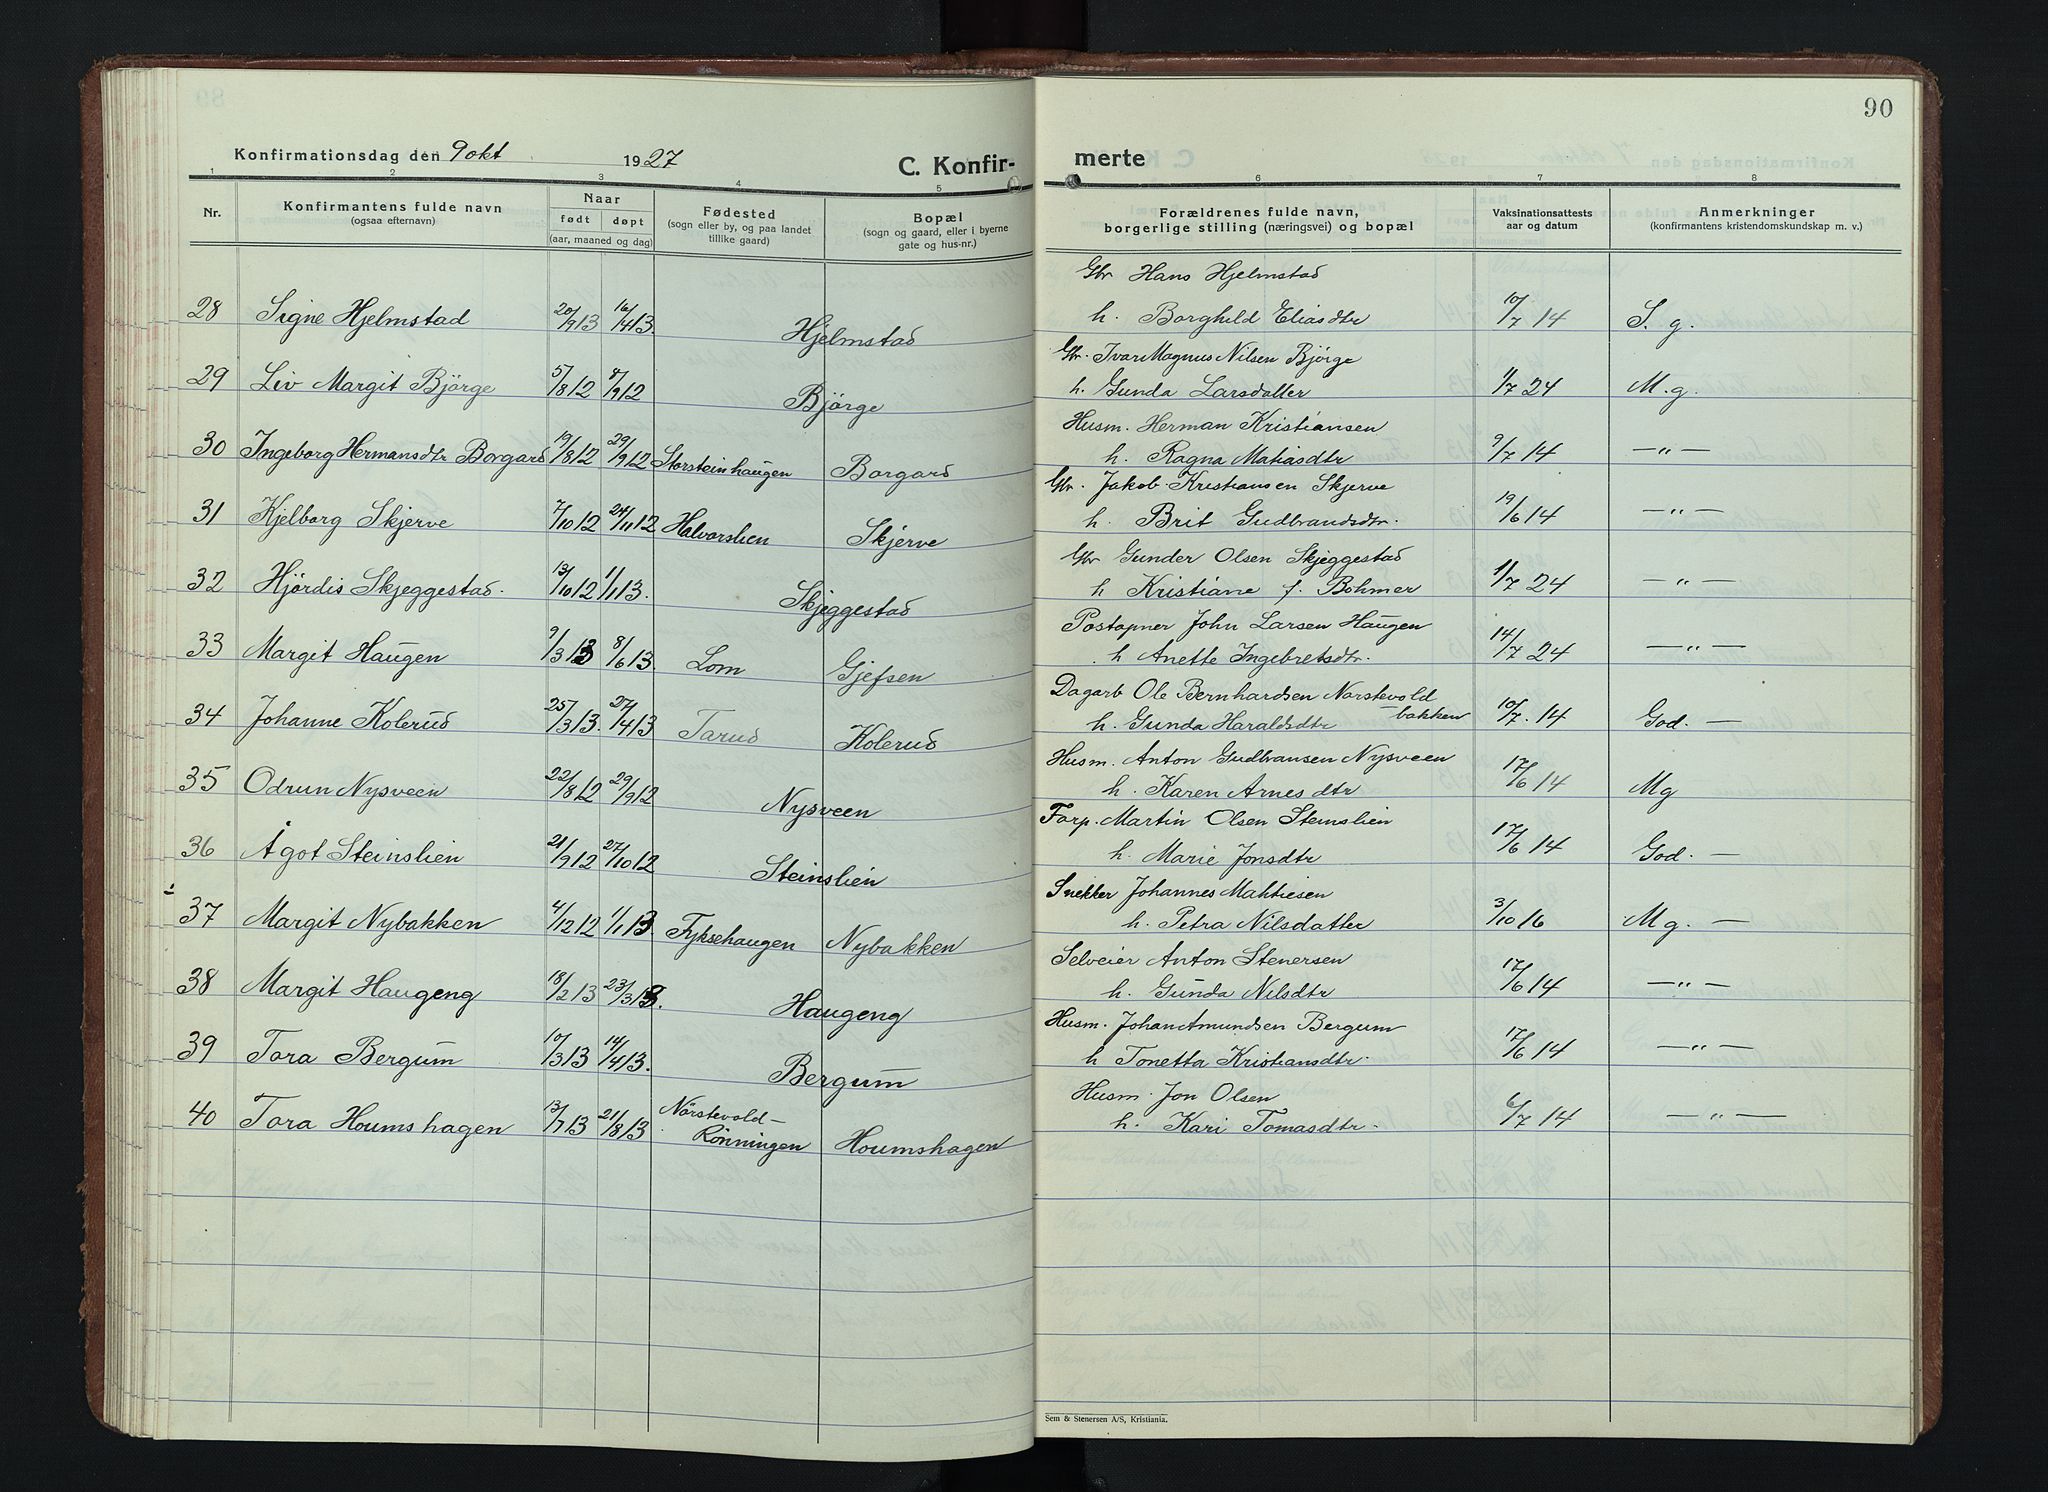 90
Konfirmationsdag den 9 okt 1927
C. Konfirmerte
1 2 3 4 5 6 7 8
Nr.
Konfirmantens fulde navn
(ogsaa efternavn)
Naar
født døpt
(aar, maaned og dag)
Fødested
(sogn eller by, og paa landet
tillike gaard)
Bopæl
(sogn og gaard, eller i byerne
gate og hus-nr.)
Forældrenes fulde navn,
borgerlige stilling (næringsvei) og bopæl
Vaksinationsattests
aar og datum
Anmerkninger
(konfirmantens kristendomskundskap m. v.)
Gbr Hans Hjelmstad
28 Signe Hjelmstad 20/1 13 16/4 13 Hjelmstad h. Borghild Eliasdtr 10/7 14 S. g.
Gbr. Ivar Magnus Nilsen Bjørge
29 Liv Margit Bjørge 5/8 12 8/9 12 Bjørge h. Gunda Larsdatter 1/7 24 M. g.
Husm. Herman Kristiansen
30 Ingeborg Hermansdtr Borgard 19/8 12 29/9 12 Storsteinhaugen Borgard h. Ragna Matiasdtr 9/7 14 —"—
Gbr. Jakob Kristiansen Skjerve
31 Kjelborg Skjerve 7/10 12 24/11 12 Halvorslien Skjerve h. Brit Gudbrandsdtr. 19/6 14 —"—
Gbr Gunder Olsen Skjeggestad
32 Hjørdis Skjeggestad. 13/10 12 1/1 13. Skjeggestad h Kristiane f. Bøhmer 1/7 24 —"—
Postapner John Larsen Haugen
33 Margit Haugen 9/3 13 8/6 13 Lom Gjefsen h Anette Ingebretsdtr. 14/7 24 —"—
Dagarb Ole Bernhardsen Norstevold
bakken
34 Johanne Kolerud 25/3 13. 27/4 13 Tarud Kolerud h. Gunda Haraldsdtr 10/7. 14 God. —
Husm. Anton Gudbransen Nysveen
35 Odrun Nysveen 22/8 12 29/9 12 Nysveen h. Karen Arnesdtr 17/6 14 Mg
Forp. Martin Olsen Steinslien
36 Ågot Steinslien 21/9 12 27/10 12 Steinslien h. Marie Jonsdtr 17/6 14 God. —
Snekker Johannes Mahtiesen
37 Margit Nybakken 4/12 12 1/1 13. Fyksehaugen Nybakken h. Petra Nilsdatter 3/10 16 Mg. —
Selveier Anton Stenersen
38 Margit Haugeng 18/2 13 23/3 13. Haugeng h. Gunda Nilsdtr 17/6 14 —"—
Husm. Johan Amundsen Bergum
39 Tora Bergum 10/3 13 14/4 13. Bergum h Tonetta Kristiansdtr. 17/6 14 —"—
Husm. Jon Olsen
40 Tora Houmshagen 13/7 13 21/8 13 Nørstevold-
Rønningen Houmshagen h. Kari Tomasdtr. 6/7 14 —"—
Sem & Stenersen A/S, Kristiania.